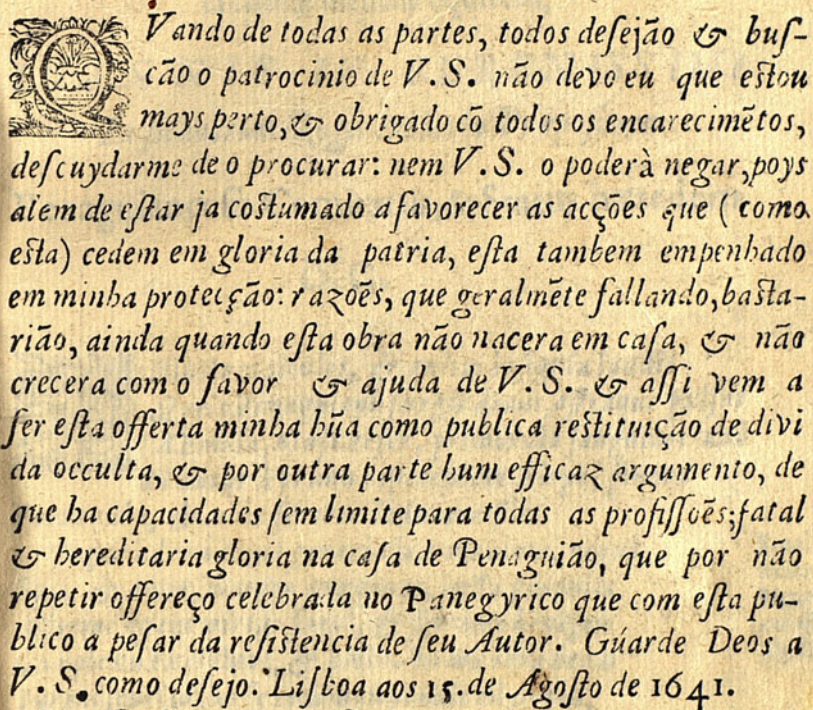 QVando de todas as partes, todos deſejão & buſ-
cão o patrocinio de V. S. não devo eu que eſtou
mays perto, & obrigado cõ todos os encarecimẽtos,
deſcuydarme de o procurar: nem V. S. o poderà negar, poys
alem de eſtar ja coſtumado a favorecer as acções que ( como
eſta) cedem em gloria da patria, eſta tambem empenhado
em minha proteição: razoẽs, que geralmẽte fallando, baſta-
rião, ainda quando eſta obra não nacera em caſa, & não
crecera com o favor & ajuda de V. S. & aſſi vem a
ſer eſta offerta minha hũa como publica reſtituição de divi
da occulta, & por outra parte hum efficaz argumento, de
que ha capacidades ſem limite para todas as profiſſoẽs; fatal
& hereditaria gloria na caſa de Penaguião, que por não
repetir offereço celebrada no Panegyrico que com eſta pu-
blico a peſar da reſiſtencia de ſeu Autor. Gúarde Deos a
V. S. como deſejo. Liſboa aos 15. de Agoſto de 1641.